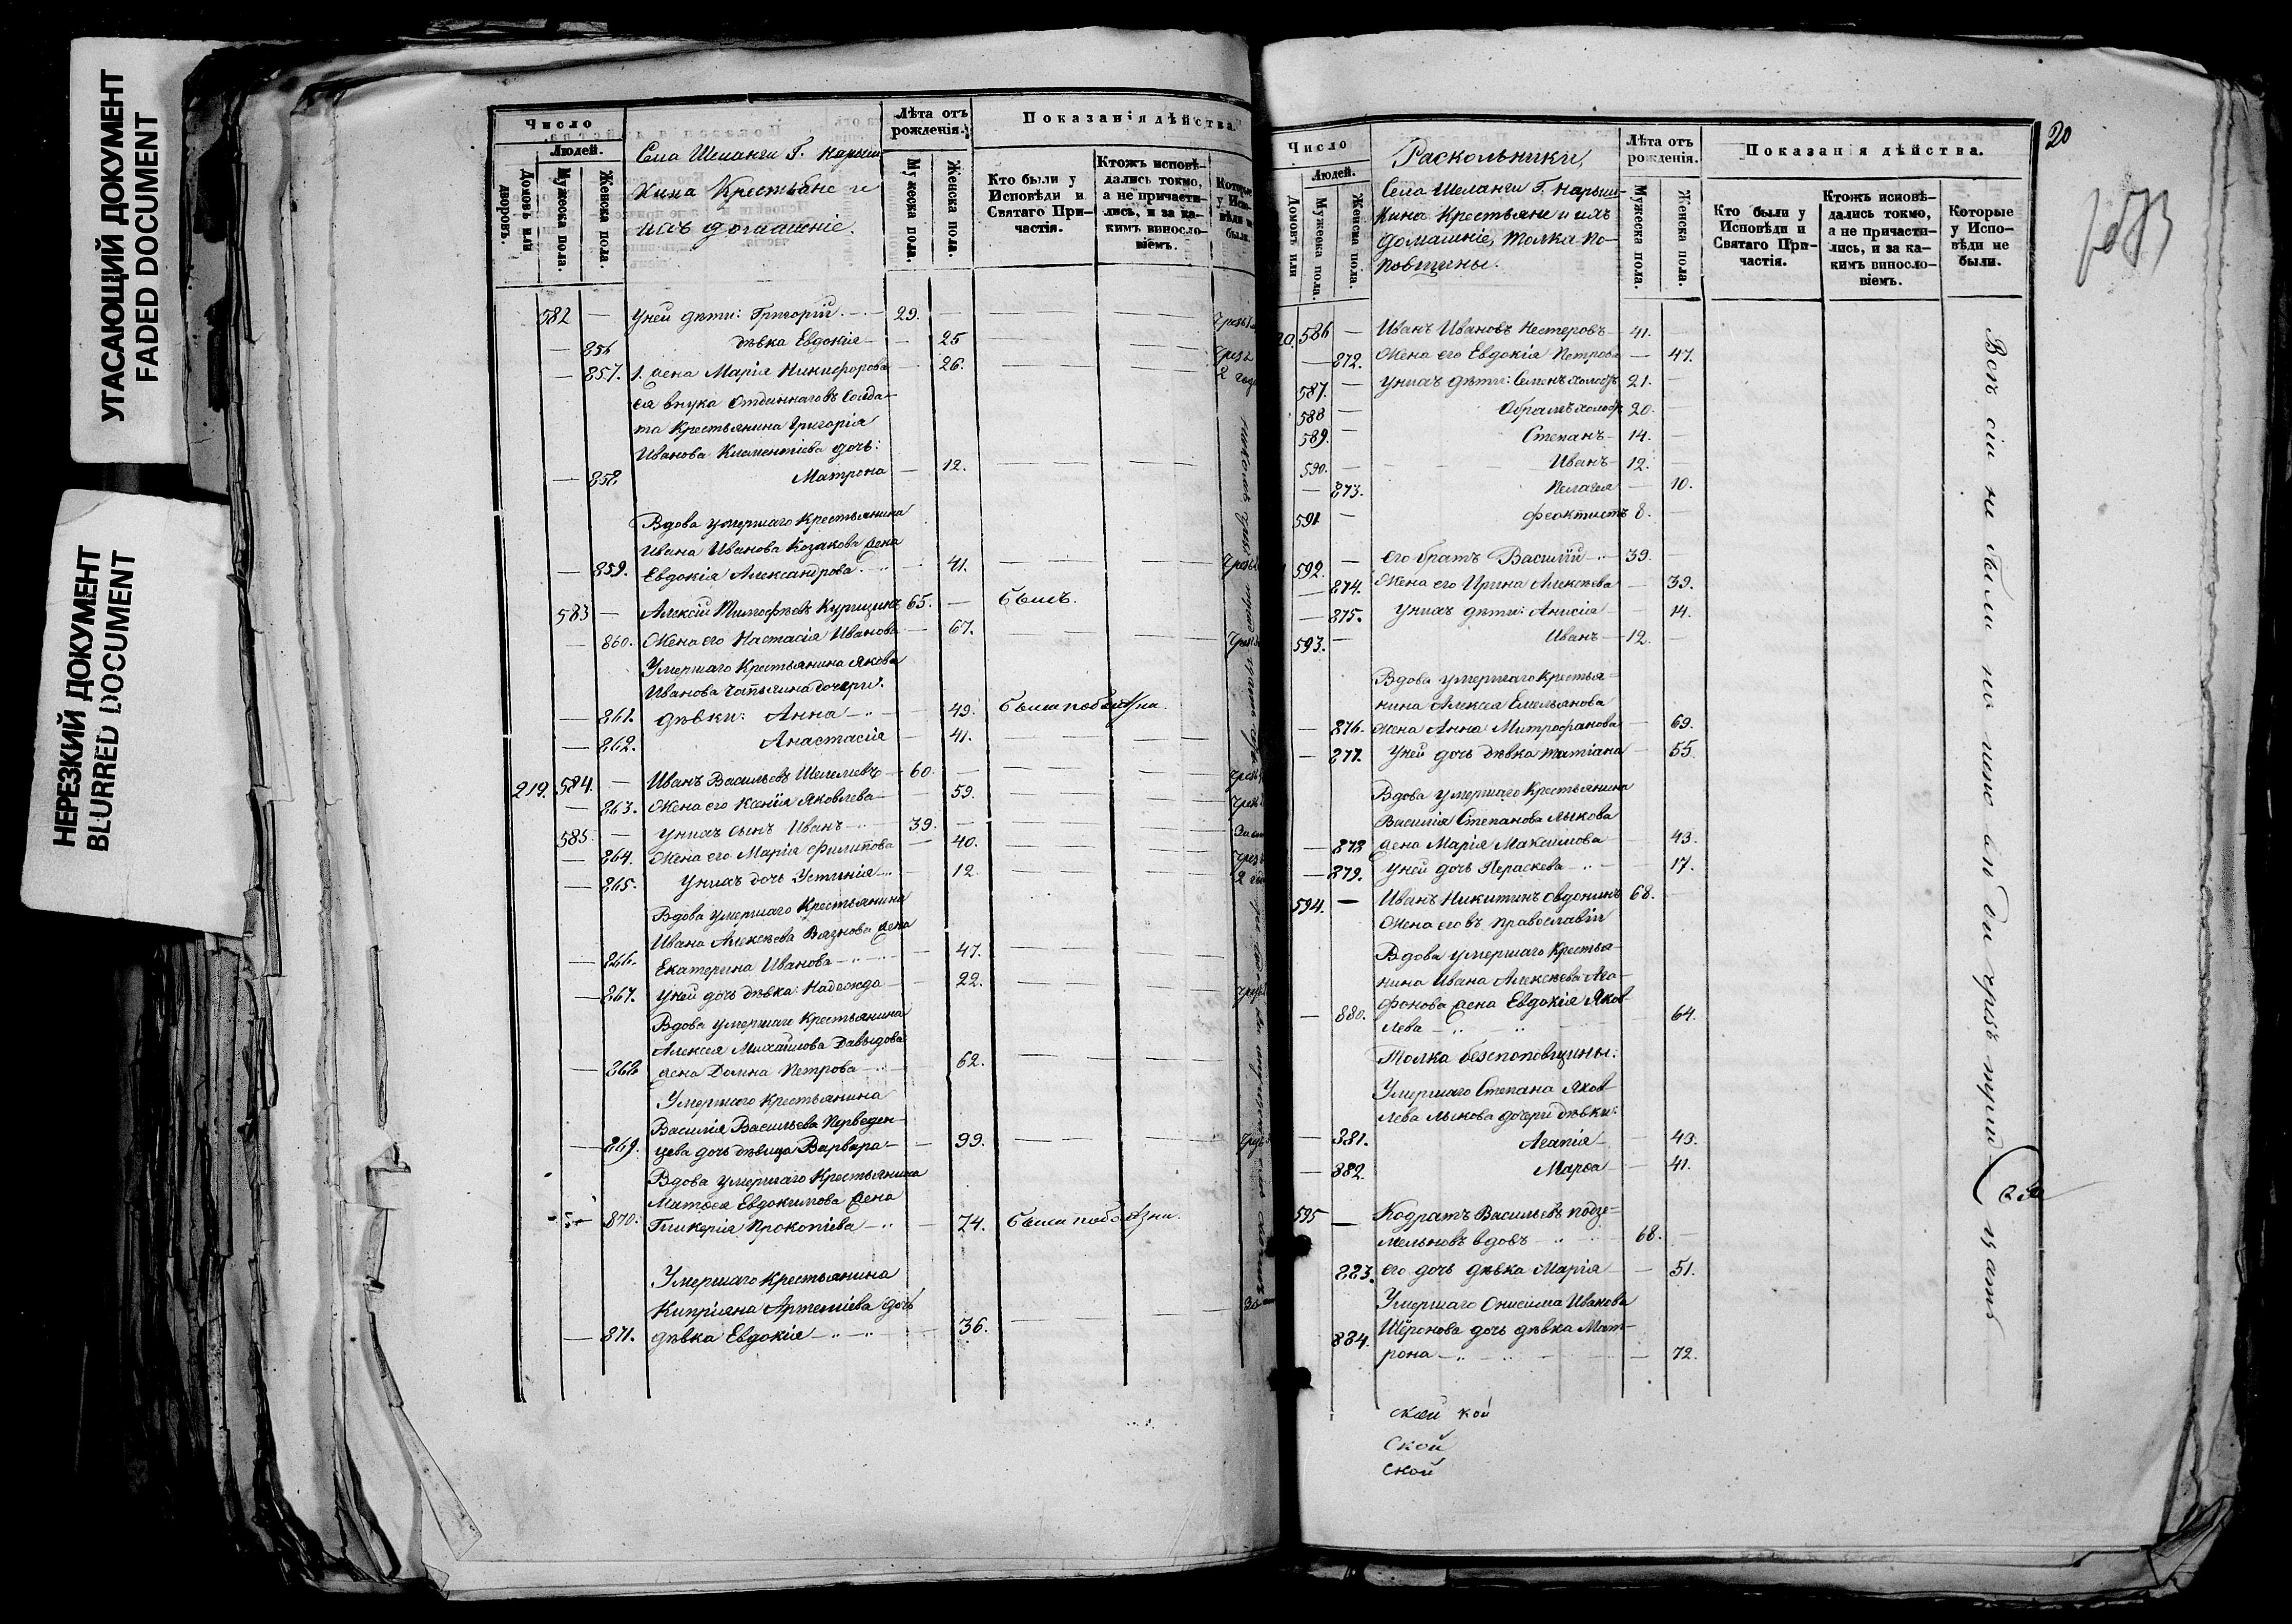 УГАСАЮЩИЙ ДОКУМЕНТ
FADED DOCUMENT
НЕРЕЗКИЙ ДОКУМЕНТ
BLURRED DOCUMENT
Число
Людей.
Домовъ или дворовъ.
Мужеска пола.
Женска пола.
Села Шеланги Г. Нарыш-
кина Крестьяне и
ихъ домашніе.
Лѣта отъ рожденія.
Мужеска пола.
Женска пола.
Показанія дѣйства.
Кто были у Исповѣди и Святаго При-частія.
Ктожъ исповѣ-дались токмо, а не причасти-лись, и за ка-кимъ виносло-віемъ.
Которые у Испо-вѣди не были.
582 — У ней дѣти: Григорій — 29. —
— 856 дѣвка Евдокія — 25
— 857. 1. жена Марія Никифорова — 26. 2
ея внука отданнаго въ Солда-
та Крестьянина Григорія
Иванова Климентіева дочь:
— 858. Матрона — 12.
Вдова умершаго Крестьянина
Ивана Иванова Козакова жена
— 859. Евдокія Александрова — 41.
583 — Алексій Тимофѣевъ Курицинъ 65. — былъ.
— 860. Жена его Настасія Иванова — 67.
Умершаго Крестьянина Якова
Иванова дочери:
— 861. дѣвки: Анна — 49.
— 862. Анастасія — 41.
219. 584. — Иванъ Васильевъ Шегелевъ — 60. —
— 863. Жена его Ксенія Яковлева — 59.
585. — У нихъ сынъ Иванъ — 39. —
— 864. Жена его Марія Филипова — 40.
— 865. У нихъ дочь Устинія — 12. 2
Вдова умершаго Крестьянина
Ивана Алексѣева Вязнова жена
— 866. Екатерина Иванова — 47.
— 867. У ней дочь дѣвка: Надежда — 22.
Вдова умершаго Крестьянина
Алексѣя Михайлова Давыдова
— 868 жена Домна Петрова — 62.
Умершаго Крестьянина
Василія Васильева Переведен-
— 869. цева дочь дѣвица Варвара — 99.
Вдова умершаго Крестьянина
Матѳея Евдокимова жена
— 870. Гликерія Прокопіева — 74.
Умершаго Крестьянина
Кипріяна Артеміева дочь
— 871. дѣвка Евдокія — 36.
20
Число
Людей.
Домовъ или
Мужеска пола.
Женска пола.
Раскольники,
Села Шеланги Г. Нарыш-
кина Крестьяне и ихъ
домашніе, толка по-
повщины.
Лѣта отъ рожденія.
Мужеска пола.
Женска пола.
Показанія дѣйства.
Кто были у Исповѣди и Святаго При-частія.
Ктожъ исповѣ-дались токмо, а не причасти-лись, и за ка-кимъ виносло-віемъ.
Которые у Испо-вѣди не были.
586 — Иванъ Ивановъ Нестеровъ — 41.
— 872. Жена его Евдокія Петрова — 47.
587. — У нихъ дѣти: Семенъ холостъ 21.
588 — Абрамъ холостъ 20.
589. — Степанъ — 14.
590. — Иванъ — 12.
— 873. Пелагея — 10.
591 — Феоктистъ 8.
592. — его братъ Василій — 39. —
— 874. Жена его Ирина Алексѣева — 39.
— 875. У нихъ дѣти: Анисія — 14.
593. — Иванъ — 12. —
Вдова умершаго Крестья-
нина Алексѣя Емельянова
— 876. жена Анна Митрофанова — 69.
— 877. У ней дочь дѣвка Татіана — 55
Вдова умершаго Крестьянина
Василія Степанова Лыкова
— 878 жена Марія Максимова — 43.
— 879. У ней дочь Параскева — 17.
594. — Иванъ Никитинъ Овдонинъ 68. —
Жена его въ православіи
Вдова умершаго Крестья-
нина Ивана Алексѣева Ага-
фонова жена Евдокія Яков-
— 880. лева — 64.
Толка безпоповщины:
Умершаго Степана Яков-
лева Лыкова дочери дѣвки:
— 881. Агапія — 43.
— 882. Марѳа — 41.
595 — Кодратъ Васильевъ Подзе-
мельновъ вдовъ — 68. —
883. его дочь дѣвка Марія — 51.
Умершаго Онисима Иванова
884. дочь дѣвка Мат-
рона — 72.
Всѣ сіи не были
ской кой
ской
ской